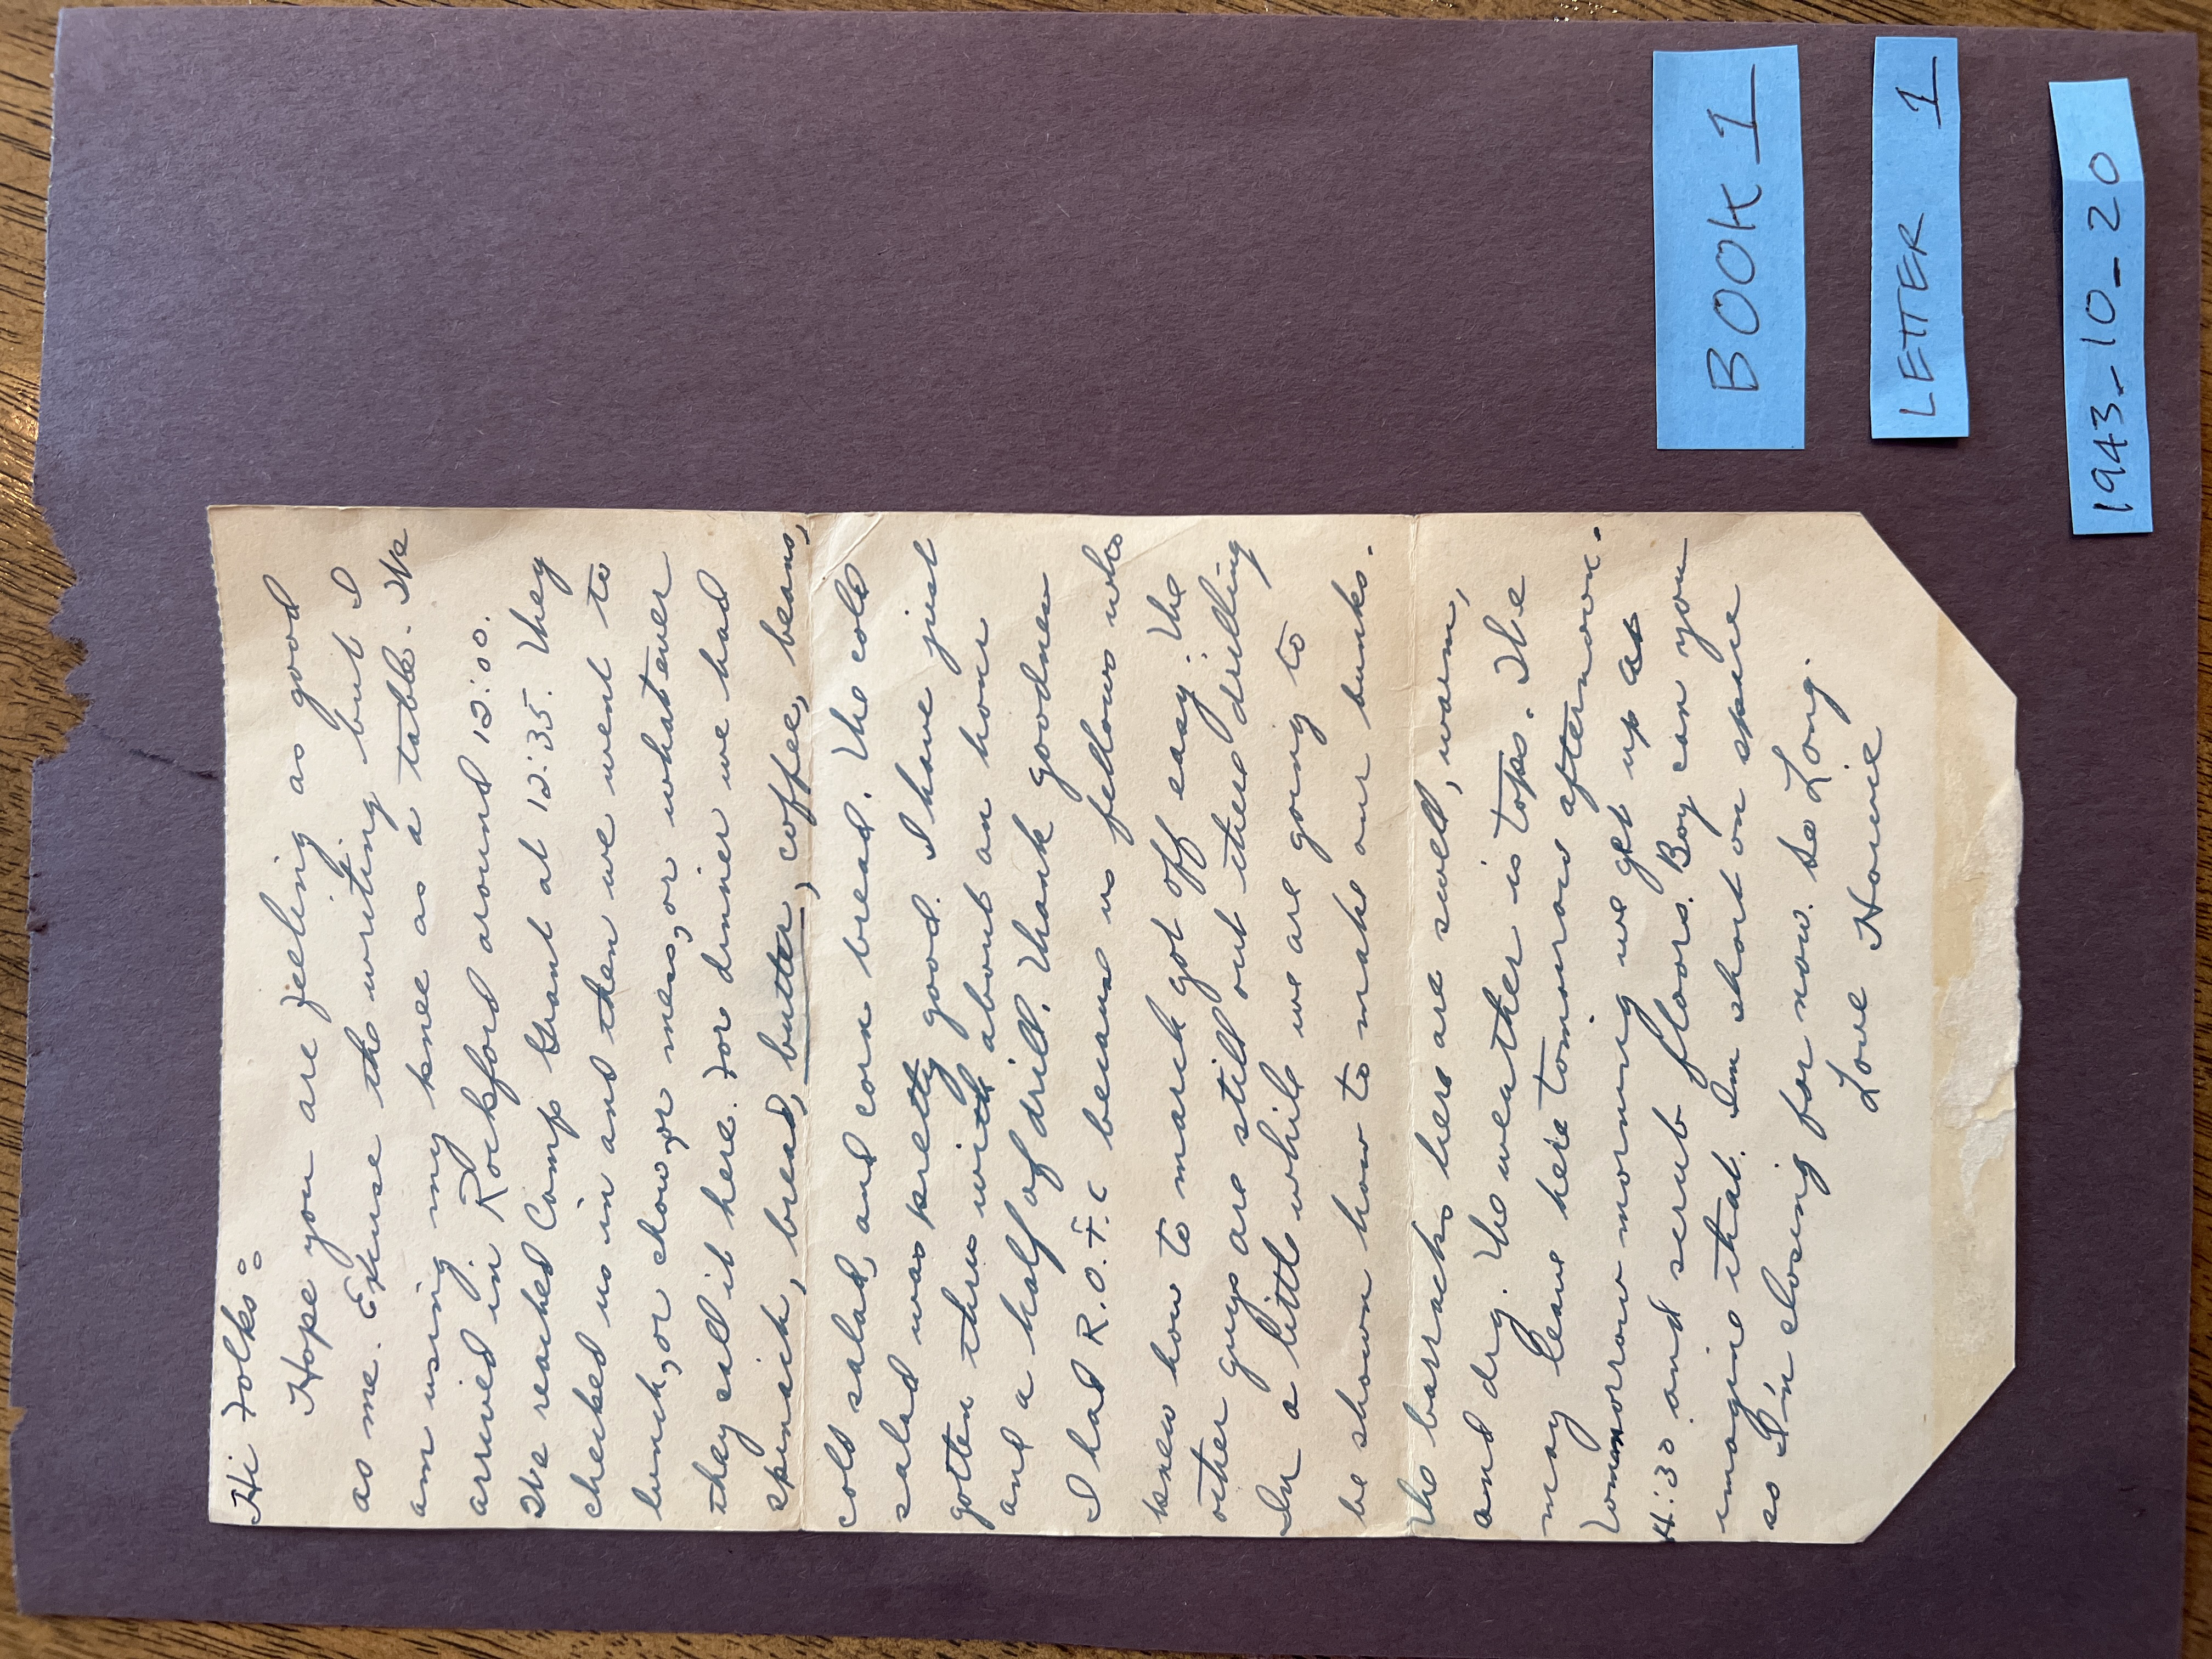 Hi Folks:
Hope you are feeling as good
as me. Excuse the writing but I
am using my knee as a table. We
arrived in Rockford around 12:00.
We reached Camp Grant at 12:35. They
checked us in and then we went to
lunch, or chow, or mess, or whatever
they call it here. For dinner we had
spinach, bread, butter, coffee, beans,
cold salad, and corn bread. The cold
salad was pretty good. I have just
gotten thru with about an hour
and a half of drill. Thank goodness
I had R.O.T.C because us fellows who
knew how to march got off easy. The
other guys are still out there drilling
In a little while we are going to
be shown how to make our bunks.
The barracks here are swell, warm,
and dry. The weather is tops. We
may leave here tomorrow afternoon.
Tommorrow morning we get up at
4:30 and scrub floors. Boy can you
imagine that. Im short on space
so I'n closing for now. So Long.
Love Howie
BOOK 1
LETTER 1
1943-10-20